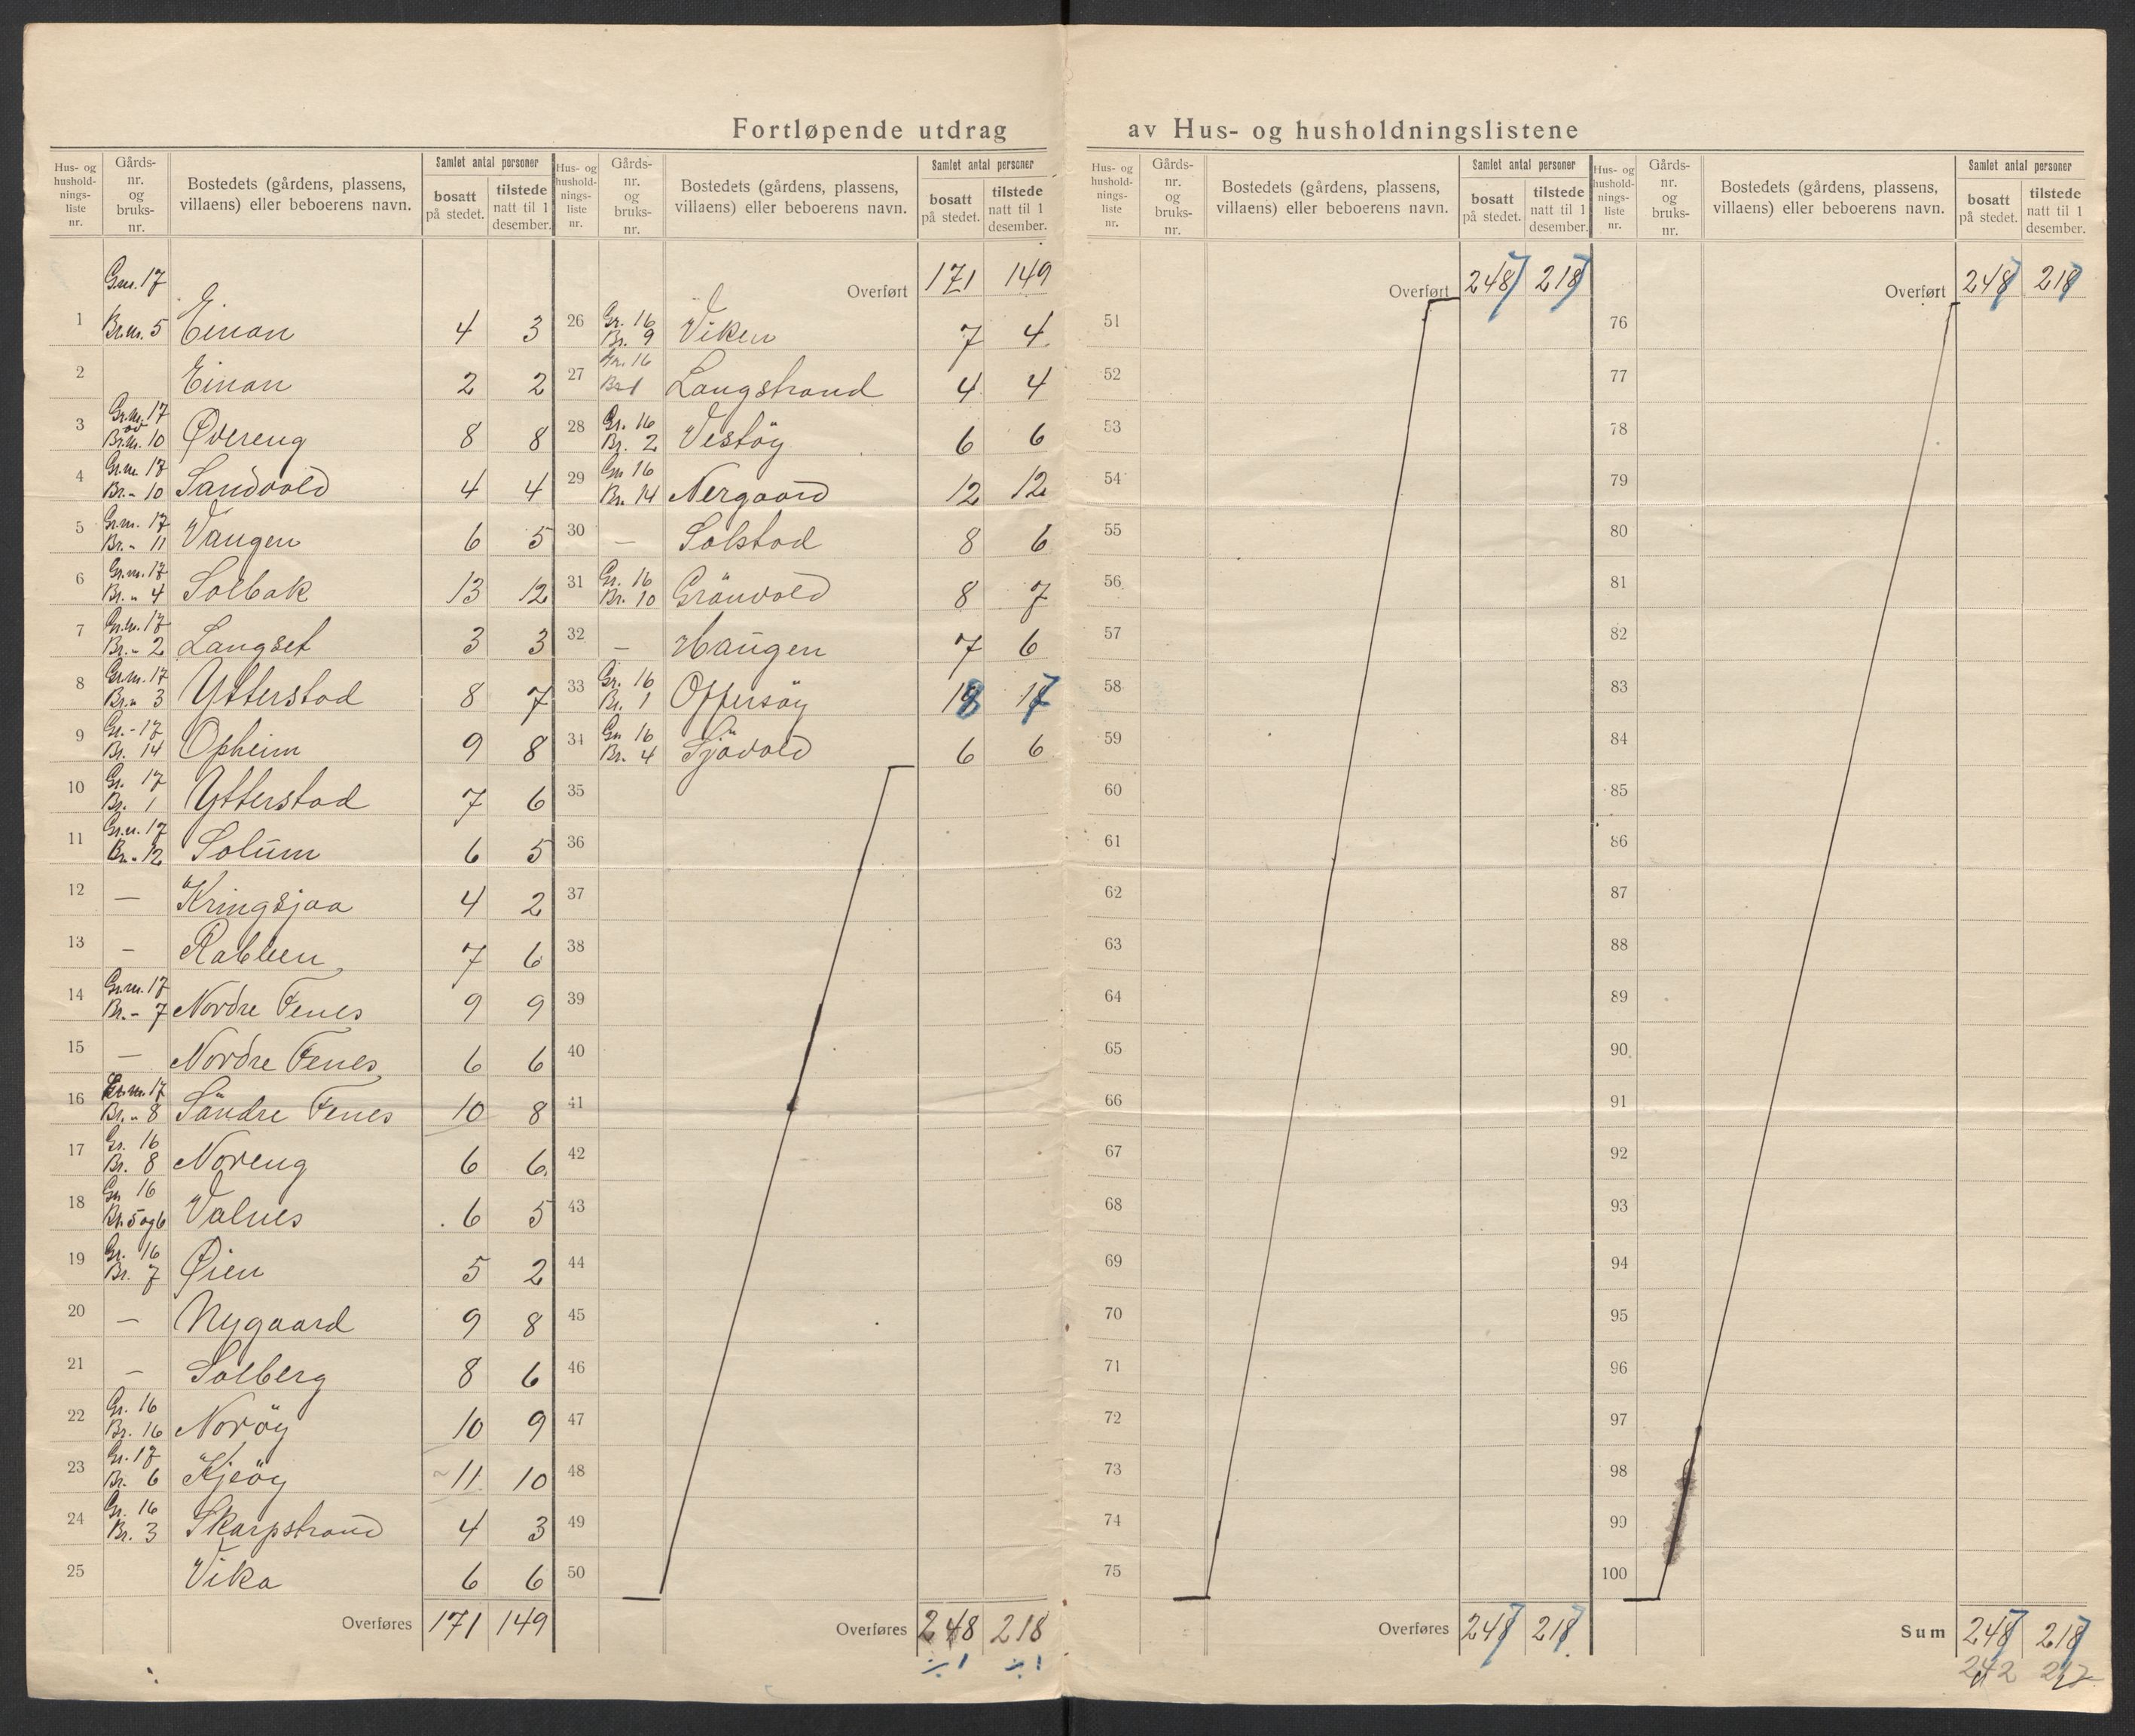 Fortløpende utdrag av Hus- og husholdningslistene
Hus- og hushold-nings-liste nr. Gårds-nr. og bruks-nr. Bostedets (gårdens, plassens, villaens) eller beboerens navn. Samlet antal personer bosatt på stedet. tilstede natt til 1 desember.
Gnr. 17
1 Br.nr. 5 Einan 4 3
2 Einan 2 2
3 Gr.nr. 17 Br.nr. 10 Øvereng 8 8
4 Gr.nr. 17 Br.- 10 Sandvold 4 4
5 Gr.nr. 17 Br.- 11 Vangen 6 5
6 Gr.nr. 17 Br. " 4 Solbak 13 12
7 Gr.nr. 17 Br.- 2 Langset 3 3
8 Gr.nr. 17 Br. " 3 Ytterstad 8 7
9 Gr.- 17 Br. 14 Opheim 9 8
10 Gr. 17 Br. 1 Ytterstad 7 6
11 Gr.n. 17 Br.- 12 Solum 6 5
12 — Kringsjaa 4 2
13 – Rabben 7 6
14 Gr.nr. 17 Br.- 7 Nordre Fenes 9 9
15 — Nordre Fenes 6 6
16 Gr.nr. 17 Br. " 8 Söndre Fenes 10 8
17 Gr. 16 Br. 8 Noreng 6 6
18 Gr. 16 Br. 5 og 6 Valnes 6 5
19 Gr. 16 Br. 7 Øien 5 2
20 — Nygaard 9 8
21 – Solberg 8 6
22 Gr. 16 Br. 16 Noröy 10 9
23 Gr. 17 Br. 6 Kjeöy 11 10
24 Gr. 16 Br. 3 Skarpstrand 4 3
25 Vika 6 6
Overføres 171 149
Hus- og hushold-nings-liste nr. Gårds-nr. og bruks-nr. Bostedets (gårdens, plassens, villaens) eller beboerens navn. Samlet antal personer bosatt på stedet. tilstede natt til 1 desember.
Overført 171 149
26 Gr. 16 Br. 9 Viken 7 4
27 Gr. 16 Br. 1 Langstrand 4 4
28 Gr. 16 Br. 2 Vestöy 6 6
29 Gr. 16 Br. 14 Nergaard 12 12
30 – Solstad 8 6
31 Gr. 16 Br. 10 Grönvold 8 7
32 – Haugen 7 6
33 Gr. 16 Br. 1 Offersöy 18 17
34 Gr. 16 Br. 4 Sjövold 6 6
35
36
37
38
39
40
41
42
43
44
45
46
47
48
49
50
Overføres 248 218
÷1 ÷1
Hus- og hushold-nings-liste nr. Gårds-nr. og bruks-nr. Bostedets (gårdens, plassens, villaens) eller beboerens navn. Samlet antal personer bosatt på stedet. tilstede natt til 1 desember.
Overført 247 217
51
52
53
54
55
56
57
58
59
60
61
62
63
64
65
66
67
68
69
70
71
72
73
74
75
Overføres 247 217
Hus- og hushold-nings-liste nr. Gårds-nr. og bruks-nr. Bostedets (gårdens, plassens, villaens) eller beboerens navn. Samlet antal personer bosatt på stedet. tilstede natt til 1 desember.
Overført 247 217
76
77
78
79
80
81
82
83
84
85
86
87
88
89
90
91
92
93
94
95
96
97
98
99
100
Sum 247 217
242 217